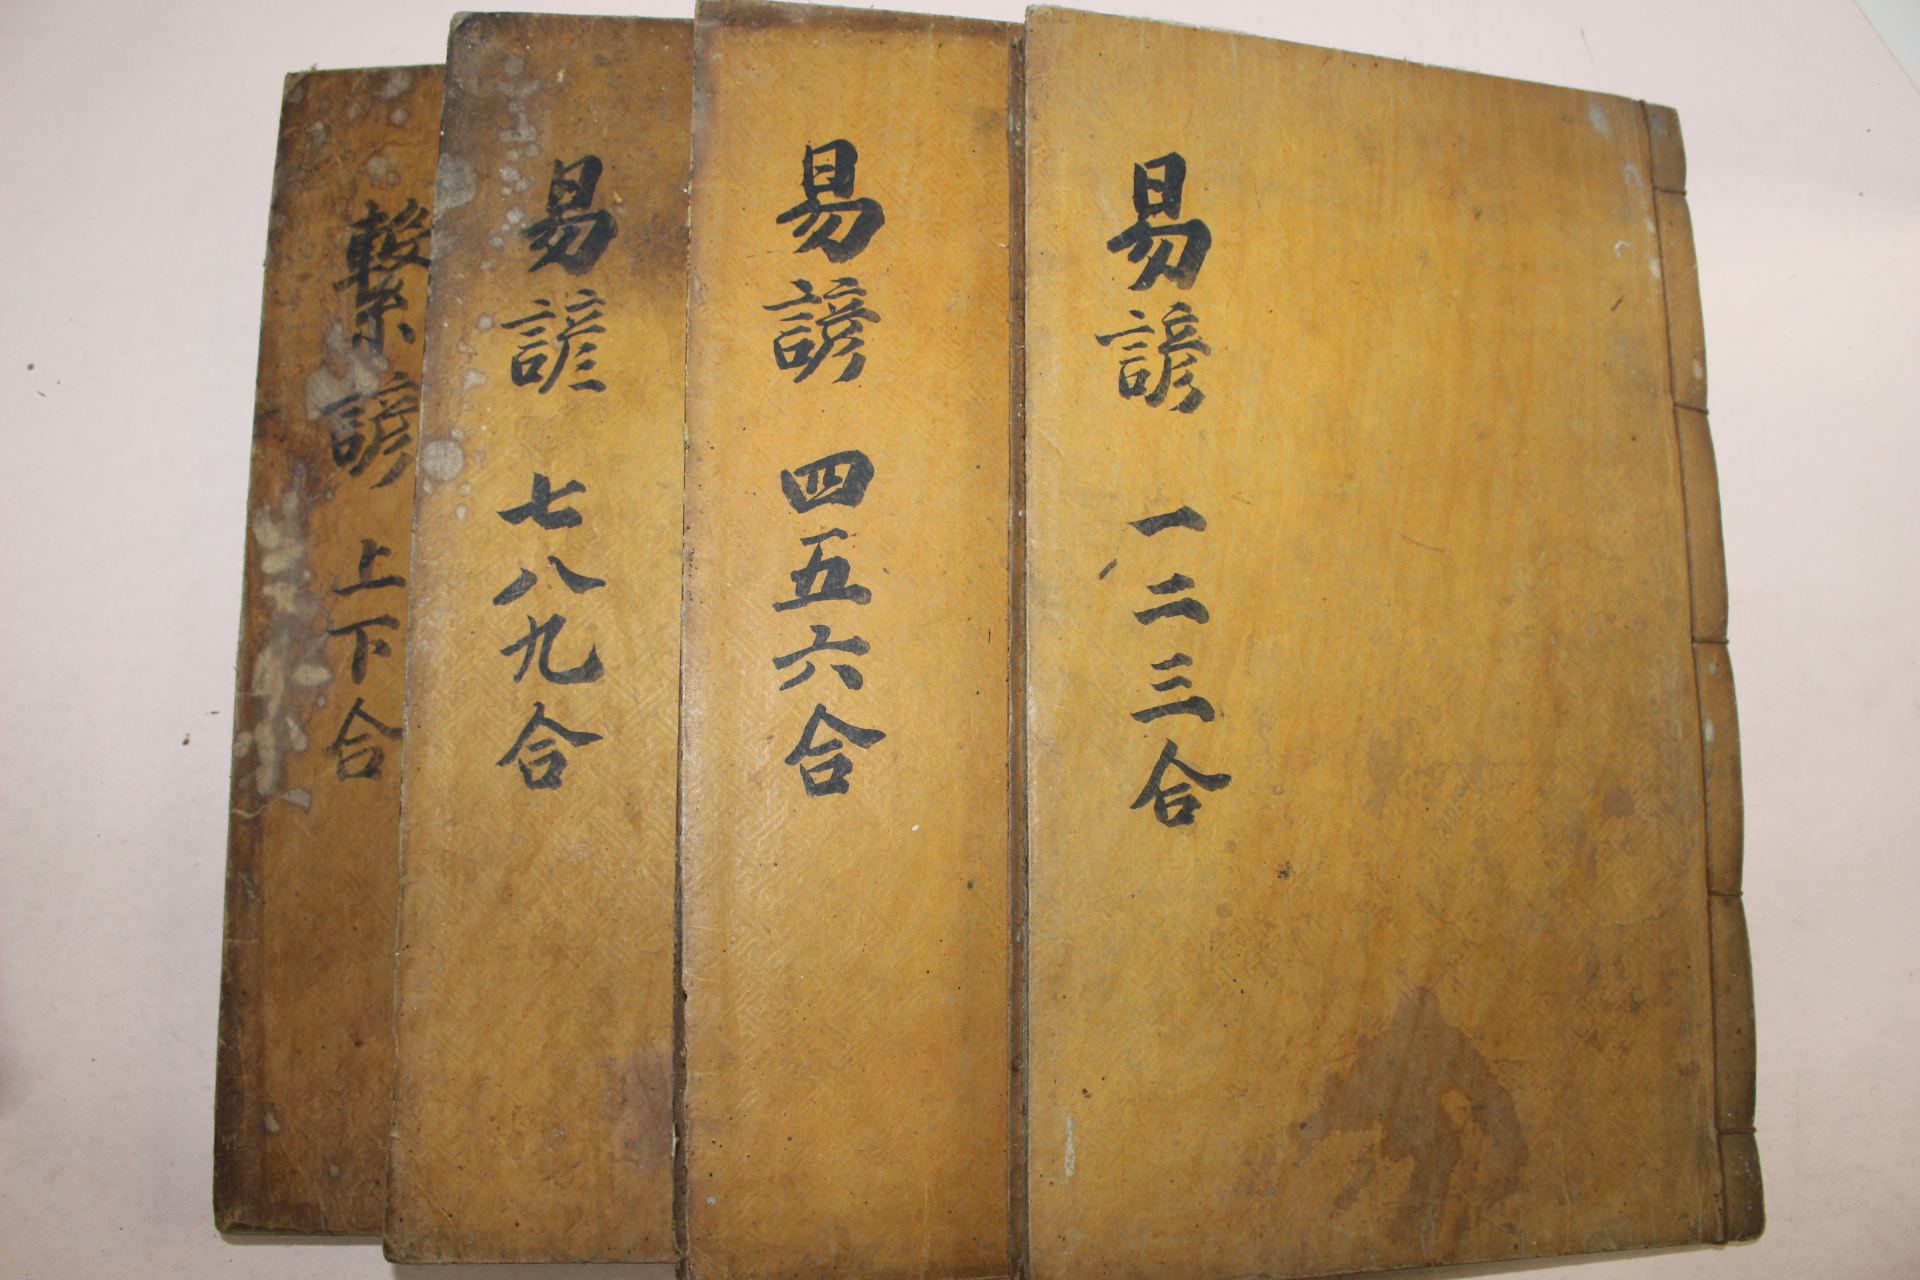 易諺 一二三合
易諺 四五六合
易諺 七八九合
繫諺 上下合